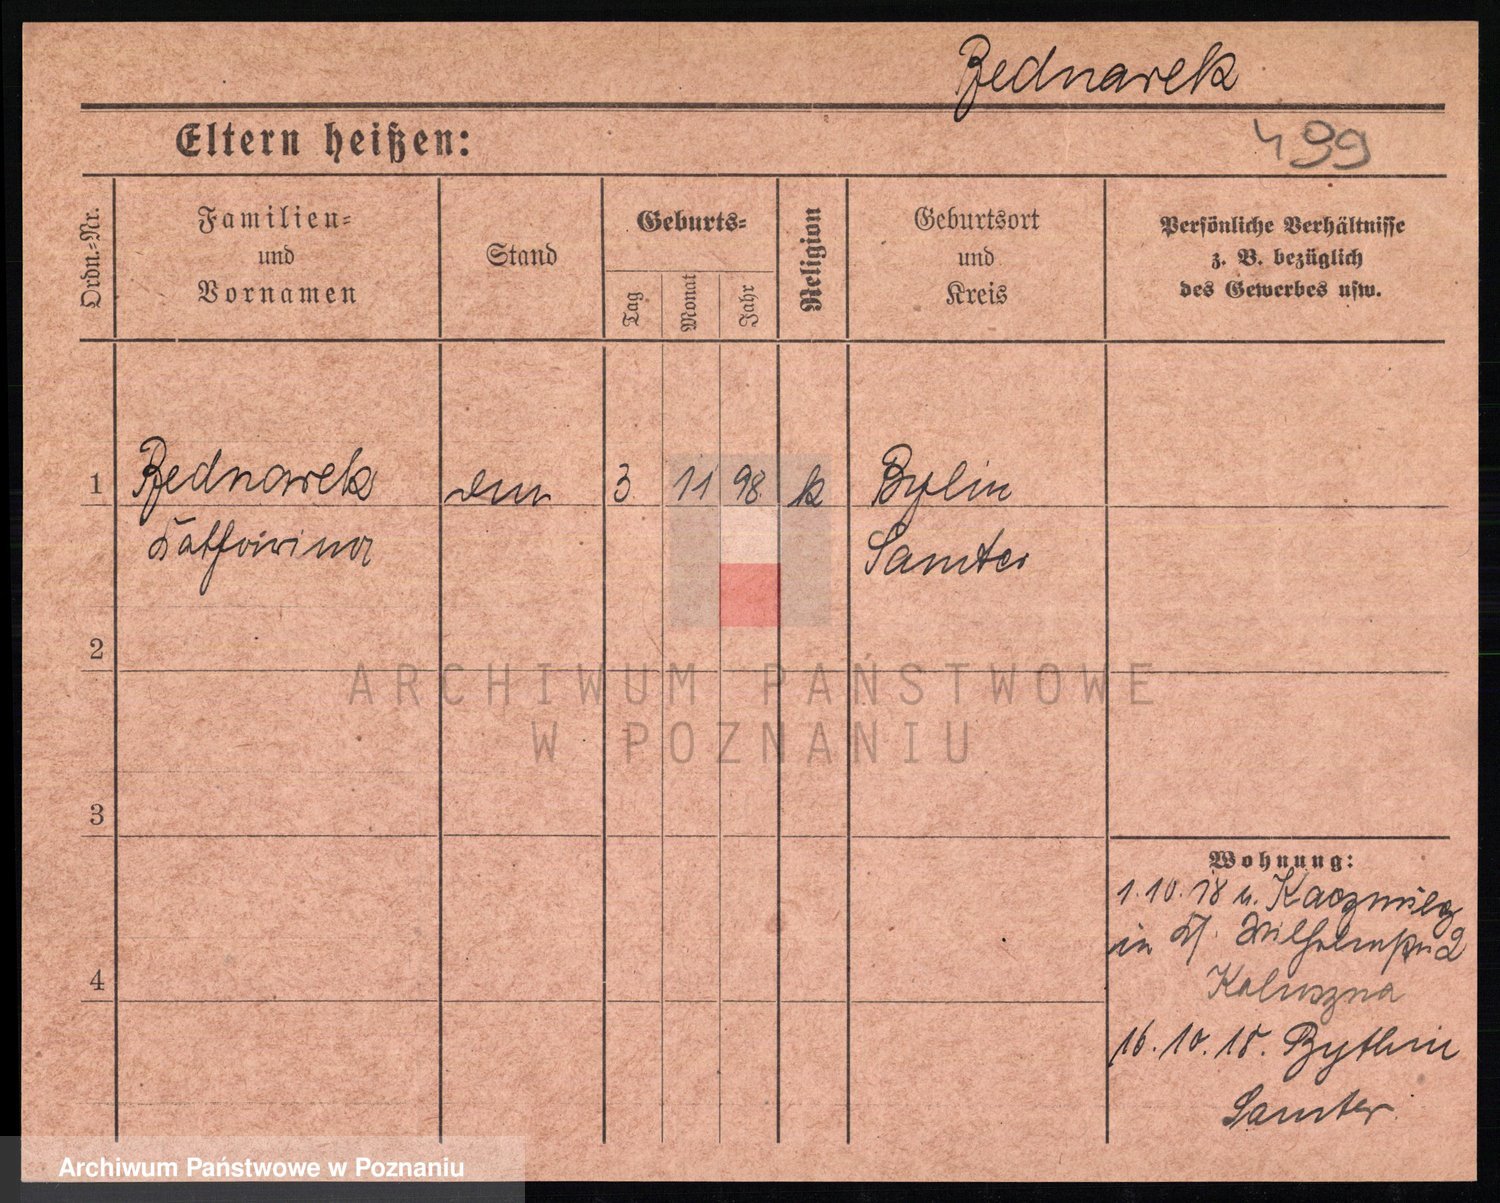 Bednarek
Eltern heißen:
499
Ordn.-Nr.
Familien-
und
Vornamen
Stand
Geburts-
Tag
Monat
Jahr
Religion
Geburtsort
und
Kreis
Persönliche Verhältnisse
z. B. bezüglich
des Gewerbes usw.
1 Bednarek 3 11 98 k Bylin
Katharina Samter
2
3
4
Wohnung:
1.10.18 v. Kaczmilcz
in
Kaluszna
16.10.18. Bythin
Samter
ARCHIWUM PAŃSTWOWE
W POZNANIU
Archiwum Państwowe w Poznaniu